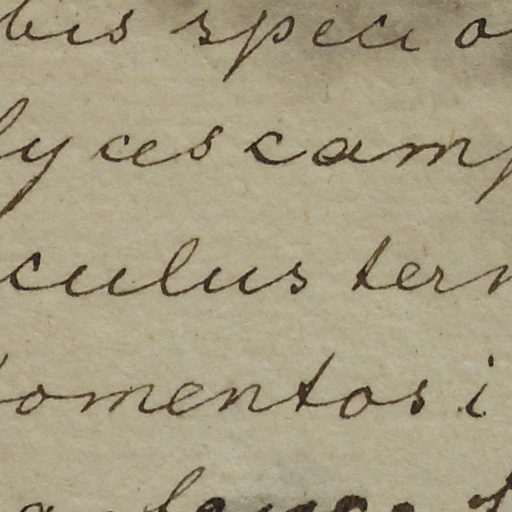 bis specio
lyces camp
culus tern
tomentosi